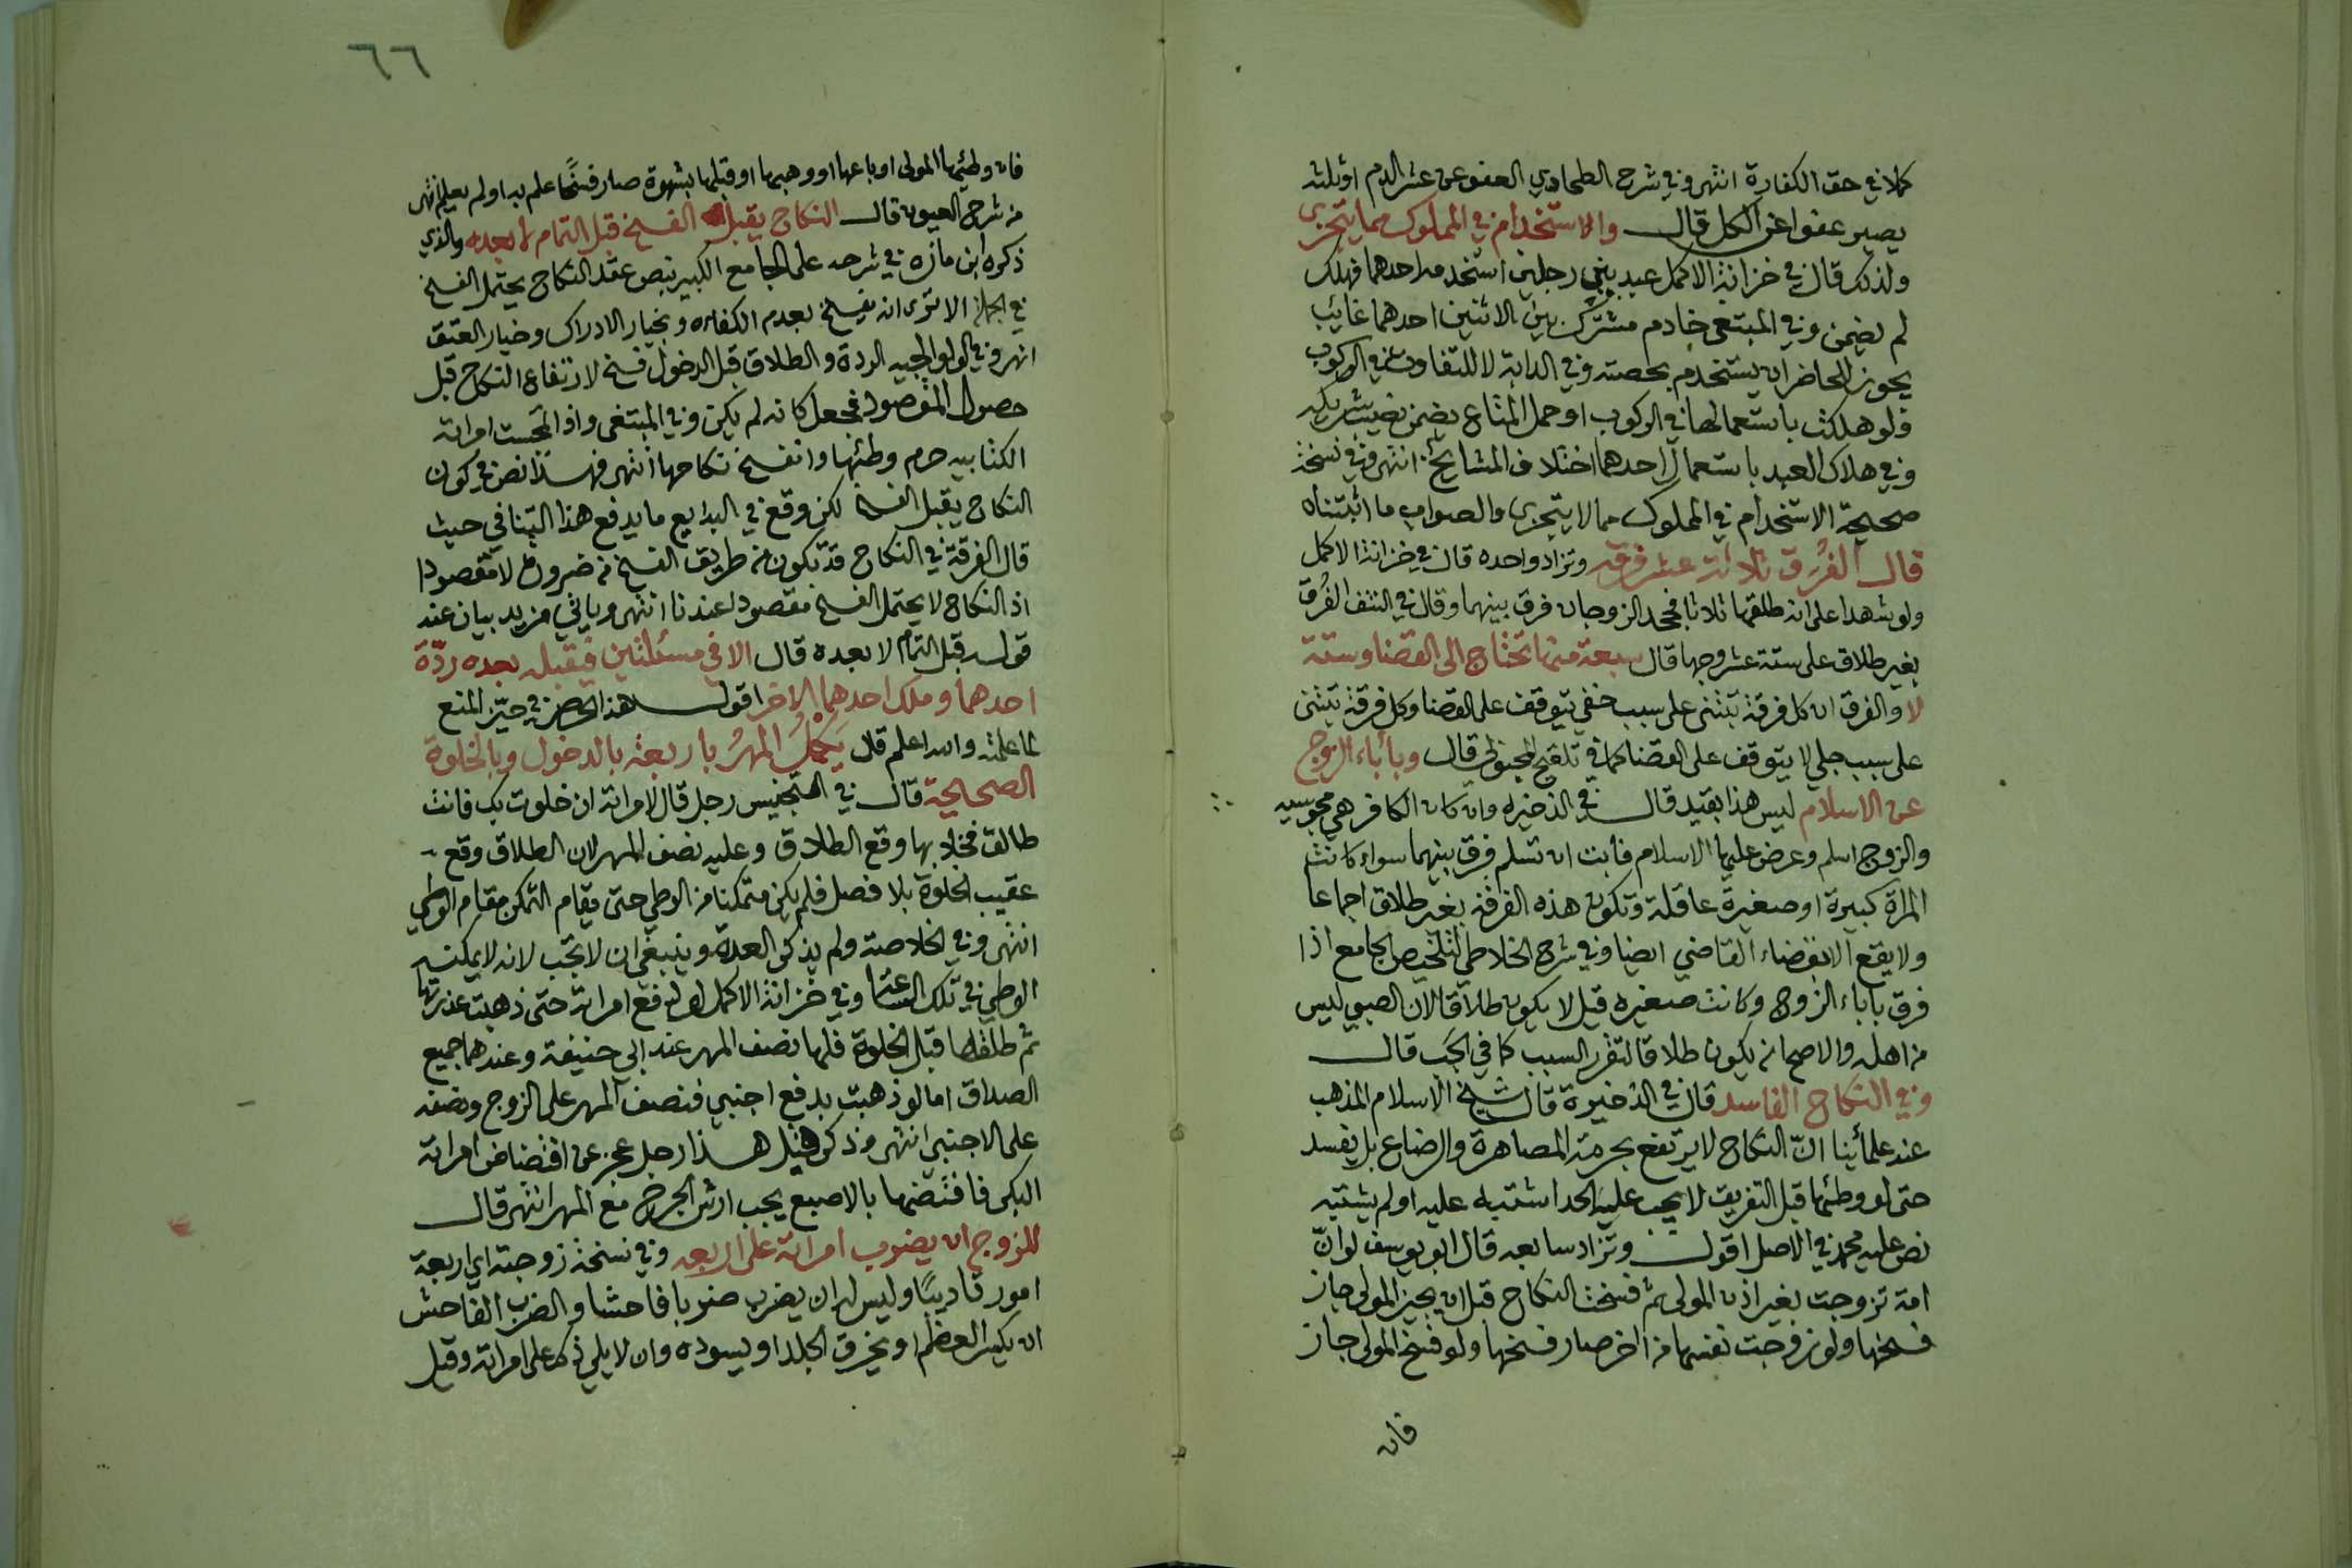 كملا في حق الكفارة انتهى وفي شرح الطحاوي العفو عن عشر الدم او ثلثه
يصير عفوا عن الكل قال والاستخدام في المملوك مما يتجزى
ولذلك قال في خزانة الاكمل عبد بين رجلين استخدمه احدهما فهلك
لم يضمن وفي المبتغى خادم مشترك بين الاثنين احدهما غائب
يجوز للحاضر ان يستخدم بحصته وفي الدابة لا للتفاوت في الركوب
فلو هلكت باستعمالها في الركوب او حمل المتاع يضمن نصيب شريكه
وفي هلاك العبد باستعمال احدهما اختلاف المشايخ انتهى وفي نسخة
صحيحة الاستخدام في المملوك مما لا يتجزى والصواب ما اثبتناه
قال الفرق ثلاثة عشر فرقه وتزاد واحده قال في خزانة الاكمل
ولو شهدا على انه طلقها ثلاثا فجحد الزوجان فرق بينهما وقال في النتف الفُرق
بغير طلاق على ستة عشر وجها قال سبعة منها تحتاج الى القضا وستة
لا والفرق ان كل فرقة تبتنى على سبب خفي يتوقف على القضا وكل فرقة تبتنى
على سبب جلي لا يتوقف على القضا كما في تلقيح المحبوبي قال وبأباء الزوج
عن الاسلام ليس هذا بقيد قال في الذخيره وان كان الكافر هي مجوسيه
والزوج اسلم وعرض عليها الاسلام فأبت ان تسلم فرق بينهما سواء كانت
المراة كبيرة او صغيرة عاقلة وتكون هذه الفرقة بغير طلاق اجماعا
ولا يقع الا بقضاء القاضي ايضا وفي شرح الخلاطي لتلخيص الجامع اذا
فرق باباء الزوج وكانت صغيره قيل لا يكون طلاقا لان الصبي ليس
من اهله والاصح انه يكون طلاقا لتقرر السبب كما في الجَب قال
وفي النكاح الفاسد قال في الذخيرة قال شيخ الاسلام المذهب
عند علمائنا انّ النكاح لا يرتفع بحرمة المصاهرة والرضاع بل يفسد
حتى لو وطئها قبل التفريق لا يجب عليه الحد اشتبه عليه او لم يشتبه
نص عليه محمد في الاصل اقول وتزاد سابعه قال ابو يوسف لو انّ
امة تزوجت بغير اذن المولى ثم فسخت النكاح قبل ان يجيز المولى جاز
فسخها ولو زوجت نفسها من اخر صار فسخها ولو فسخ المولى جاز
فان
٦٦
فان وطئها المولى او باعها او وهبها او قبلها بشهوة صار فسخًا علم بها او لم يعلم انتهى
من شرح العيون قال النكاح يقبل الفسخ قبل التمام لا بعده والذي
ذكره ابن مازه في شرحه على الجامع الكبير بنص عقد النكاح يحتمل الفسخ
في الجملة الا ترى انه يفسخ بعدم الكفاءه وبخيار الادراك وخيار العتق
انتهى وفي الولوالجيه الردة والطلاق قبل الدخول فسخ لارتفاع النكاح قبل
حصول المقصود فجعل كانه لم يكن وفي المبتغى واذا تمجست امراته
الكتابيه حرم وطئها وانفسخ نكاحها انتهى فهذا نص في كون
النكاح يقبل الفسخ لكن وقع في البدايع ما يدفع هذا التنافي حيث
قال الفرقة في النكاح قد تكون من طريق الفسخ من ضرورة لا مقصودا
اذ النكاح لا يحتمل الفسخ مقصودا عندنا انتهى وياتي مزيد بيان عند
قوله قبل التمام لا بعده قال الا في مسئلتين فيقبله بعده ردّة
احدهما وملك احدهما الاخر اقول هذا الحصر في حيّز المنع
لما علمته والله اعلم قال يَكْمُلُ المهرُ باربعة بالدخول وبالخلوة
الصحيحة قال في التجنيس رجل قال لامراته ان خلوت بك فانت
طالق فخلا بها وقع الطلاق وعليه نصف المهر لان الطلاق وقع
عقيب الخلوة بلا فصل فلم يكن متمكنا من الوطي حتى يقام التمكن مقام الوطي
انتهى وفي الخلاصة ولم يذكر العدة وينبغي ان لا تجب لانه لا يمكنه
الوطي في تلك الساعة وفي خزانة الاكمل لو دفع امراته حتى ذهبت عذرتها
ثم طلقها قبل الخلوة فلها نصف المهر عند ابي حنيفة وعندهما جميع
الصداق اما لو ذهبت بدفع اجنبي فنصف المهر على الزوج ونصفه
على الاجنبي انتهى وذكر قبيل هذا رجل عجز عن افتضاض امراته
البكر فافتضها بالاصبع يجب ارش الجرح مع المهر انتهى قال
للزوج ان يضرب امراته على اربعه وفي نسخة زوجته اي اربعة
امور تاديبًا وليس له ان يضرب ضربا فاحشا والضرب الفاحش
ان يكسر العظم او يخرق الجلد او يسوده وان لا يلي ذلك على امراته وقيل